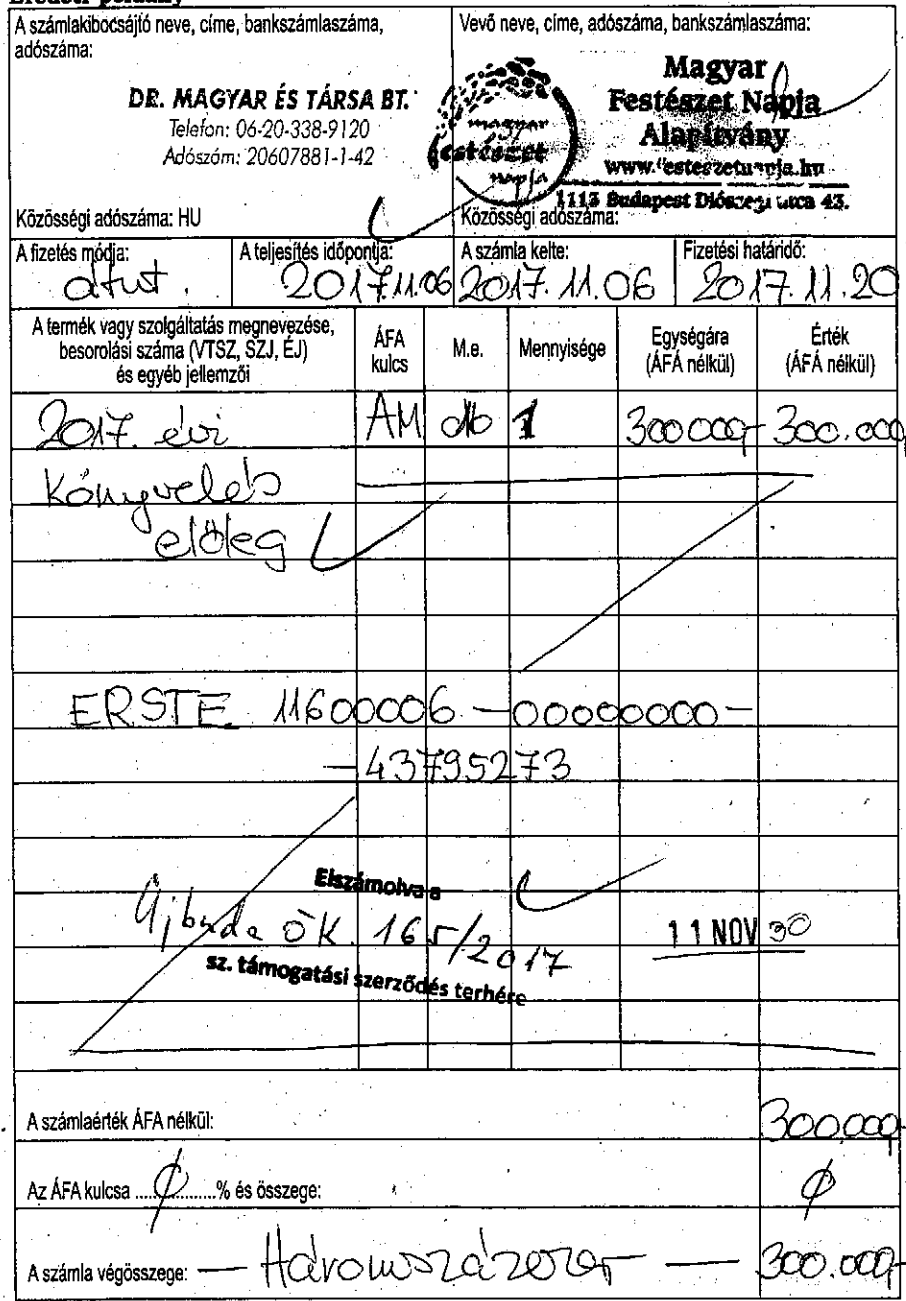 Eredeti példány
A számlakibocsájtó neve, címe, bankszámlaszáma,
adószáma:
DR. MAGYAR ÉS TÁRSA BT.
Telefon: 06-20-338-9120
Adószám: 20607881-1-42
Közösségi adószáma: HU
Vevő neve, címe, adószáma, bankszámlaszáma:
magyar
festészet
napja
Magyar
Festészet Napja
Alapítvány
www.festeszetnapja.hu
1113 Budapest Diószegi utca 43.
Közösségi adószáma:
A fizetés módja: A teljesítés időpontja: A számla kelte: Fizetési határidő:
átut. 2017.11.06 2017.11.06 2017.11.20
A termék vagy szolgáltatás megnevezése,
besorolási száma (VTSZ, SZJ, ÉJ)
és egyéb jellemzői
ÁFA
kulcs
M.e.
Mennyisége
Egységára
(ÁFA nélkül)
Érték
(ÁFA nélkül)
2017. évi AM db 1 300000,- 300.000,
Könyvelés
előleg
ERSTE 11600006-00000000-
-43795273
Elszámolva a
Újbuda ÖK. 165/2017
sz. támogatási szerződés terhére
11 NOV 30
A számlaérték ÁFA nélkül: 300.000,-
Az ÁFA kulcsa ....∅....% és összege: ∅
A számla végösszege: — Háromszázezer — 300.000,-